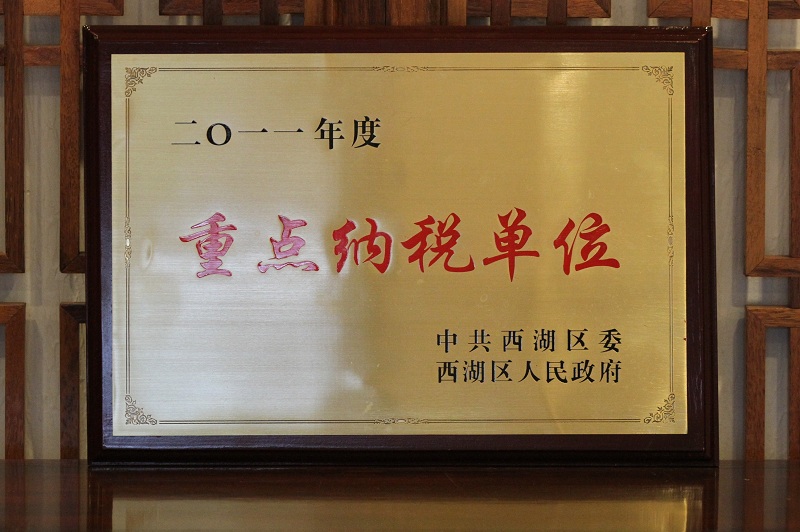 二〇一一年度
重点纳税单位
中共西湖区委
西湖区人民政府